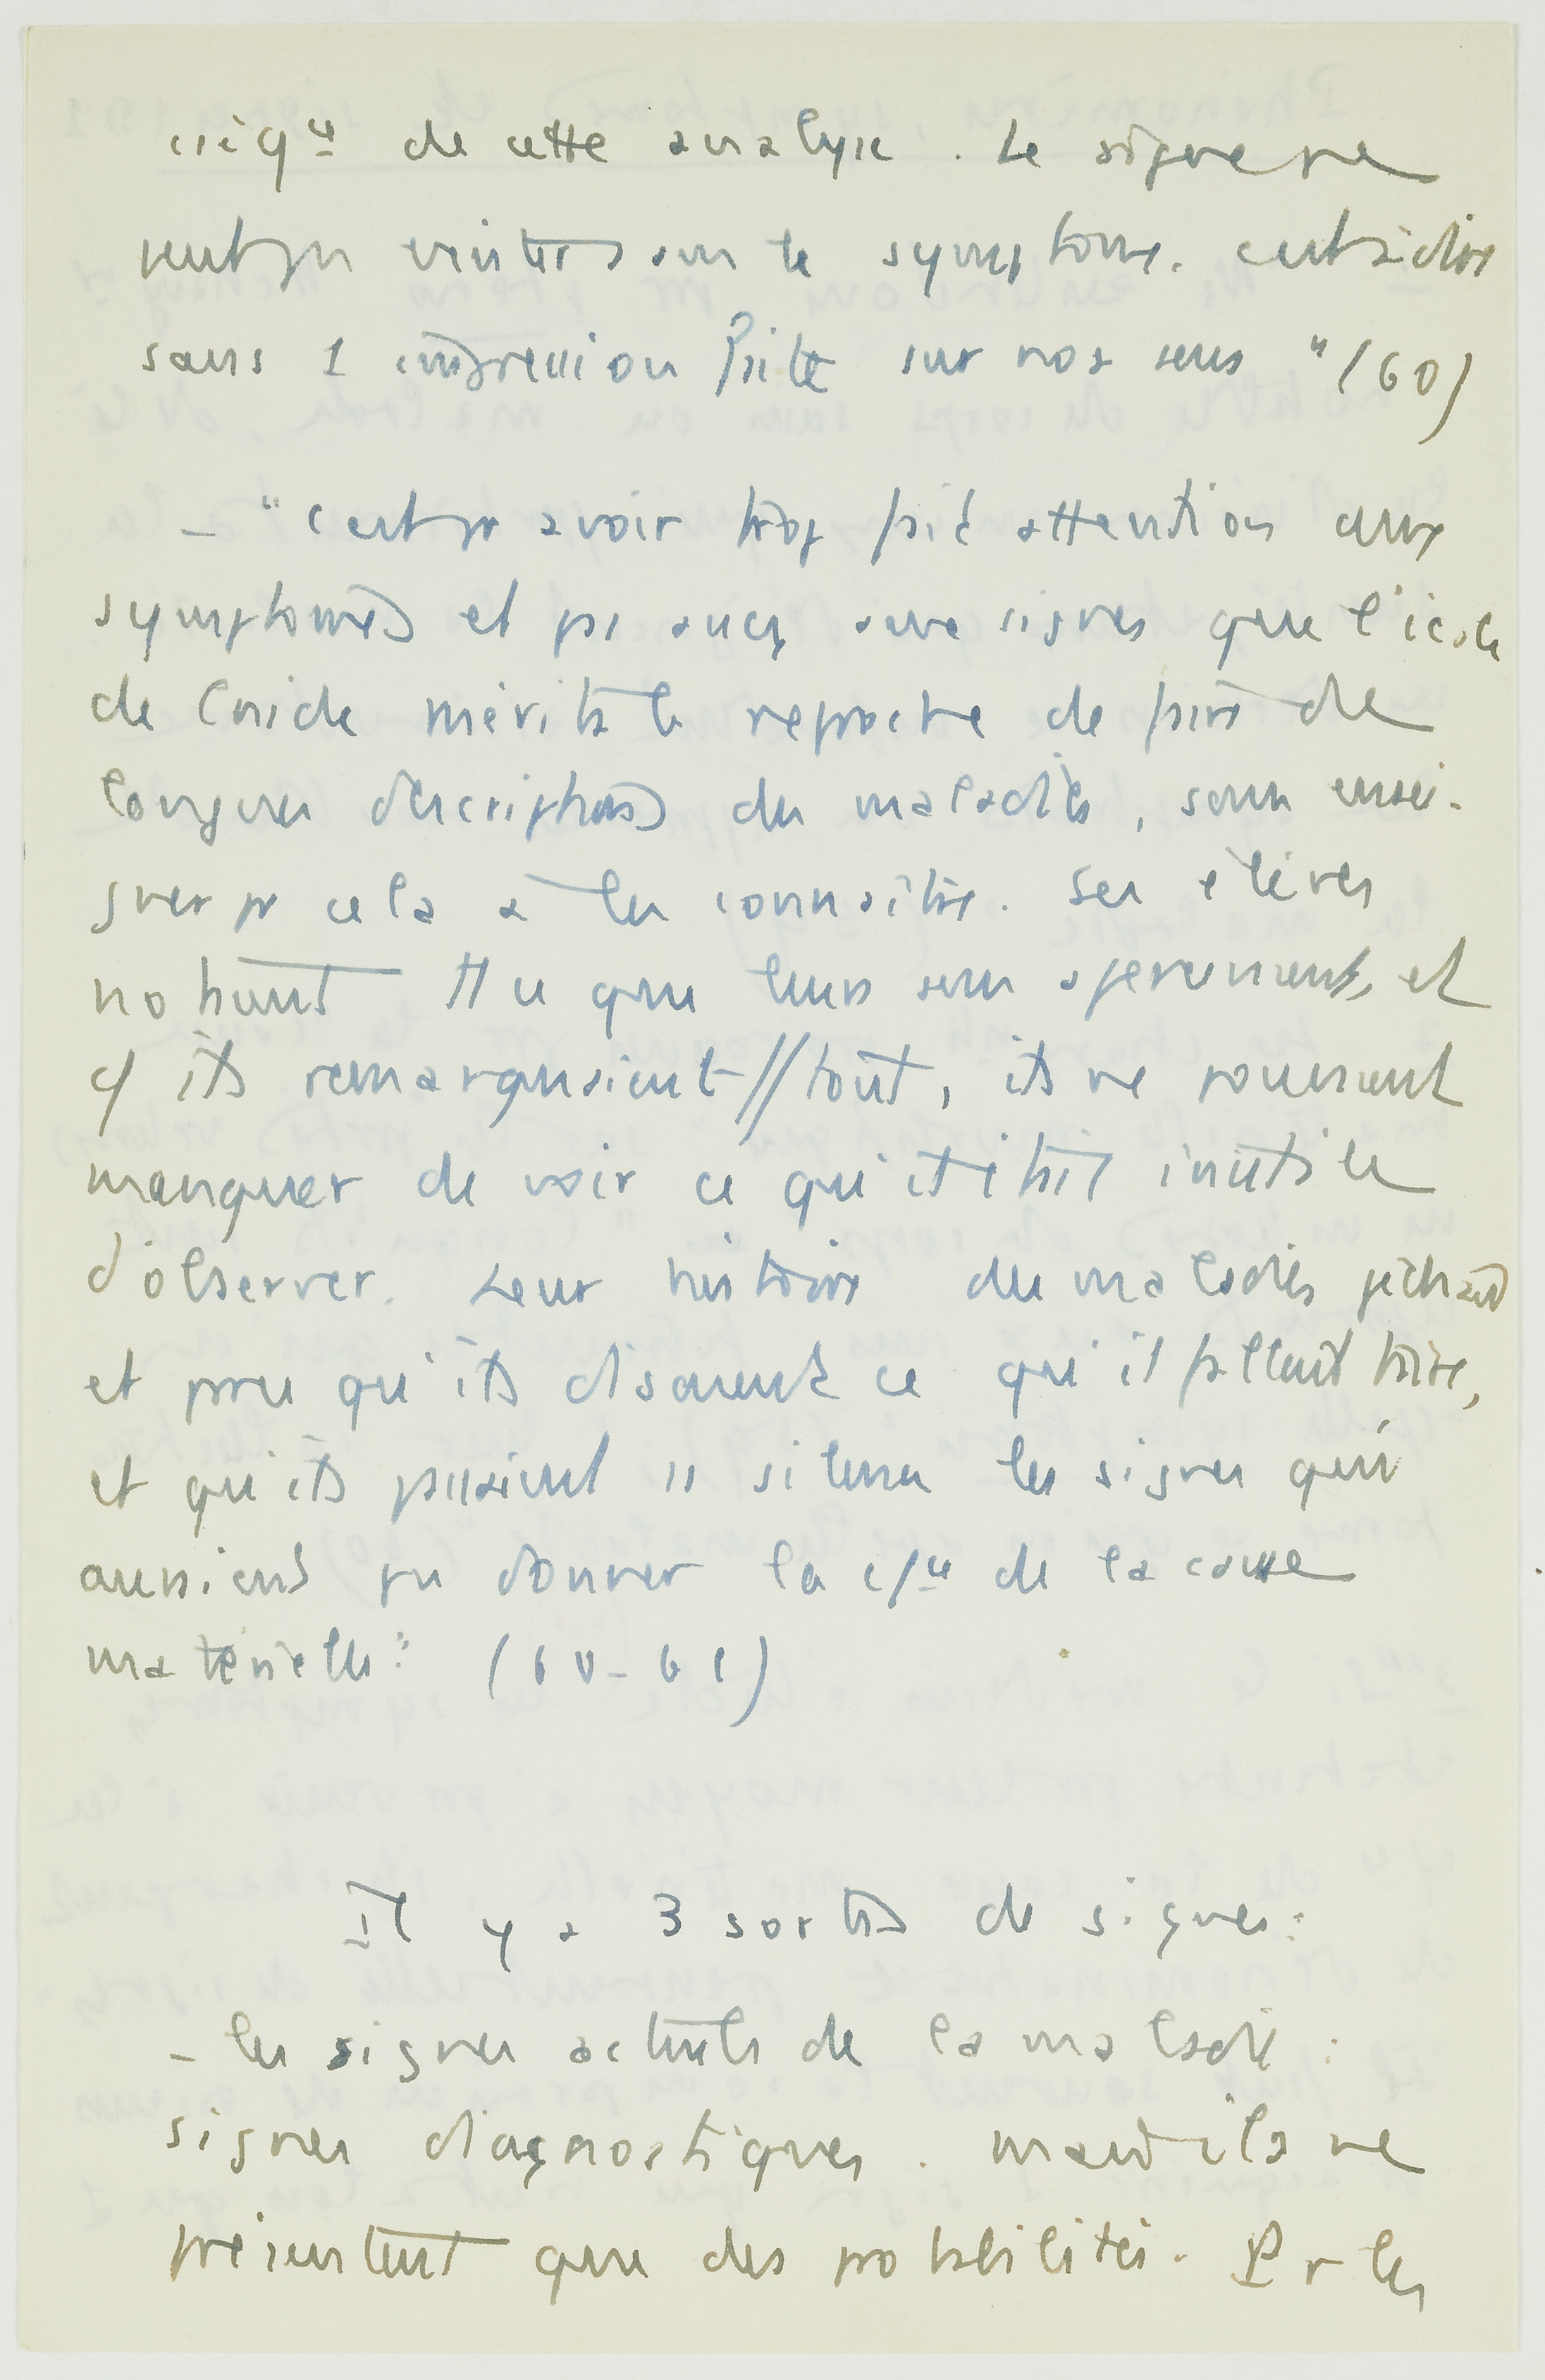 de cette analyse. Le signe ne
peut pas exister sans le symptome. c'est à dire
sans 1 impression faite sur nos sens " (60)
- "C'est pr avoir trop fait attention aux
symptomes et pas aux signes que l'école
de Cnide mérita le reproche de faire de
longues descriptions des maladies, sans ensei-
gner pr cela à les connaître. Ses élèves
notaient tt ce que leurs sens apercevaient, et
ils remarquaient // tout, ils ne pouvaient
manquer de voir ce qu'il était inutile
d'observer. Leur histoire des maladies péchait
et parce qu'ils disaient ce qu'il fallait taire,
et qu'ils passaient ss silence les signes qui
auraient pu donner la de la cause
matérielle" (60-61)
Il y a 3 sortes de signes:
- les signes actuels de la maladie :
signes diagnostiques. mais ils ne
présentent que des probabilités. Pr les